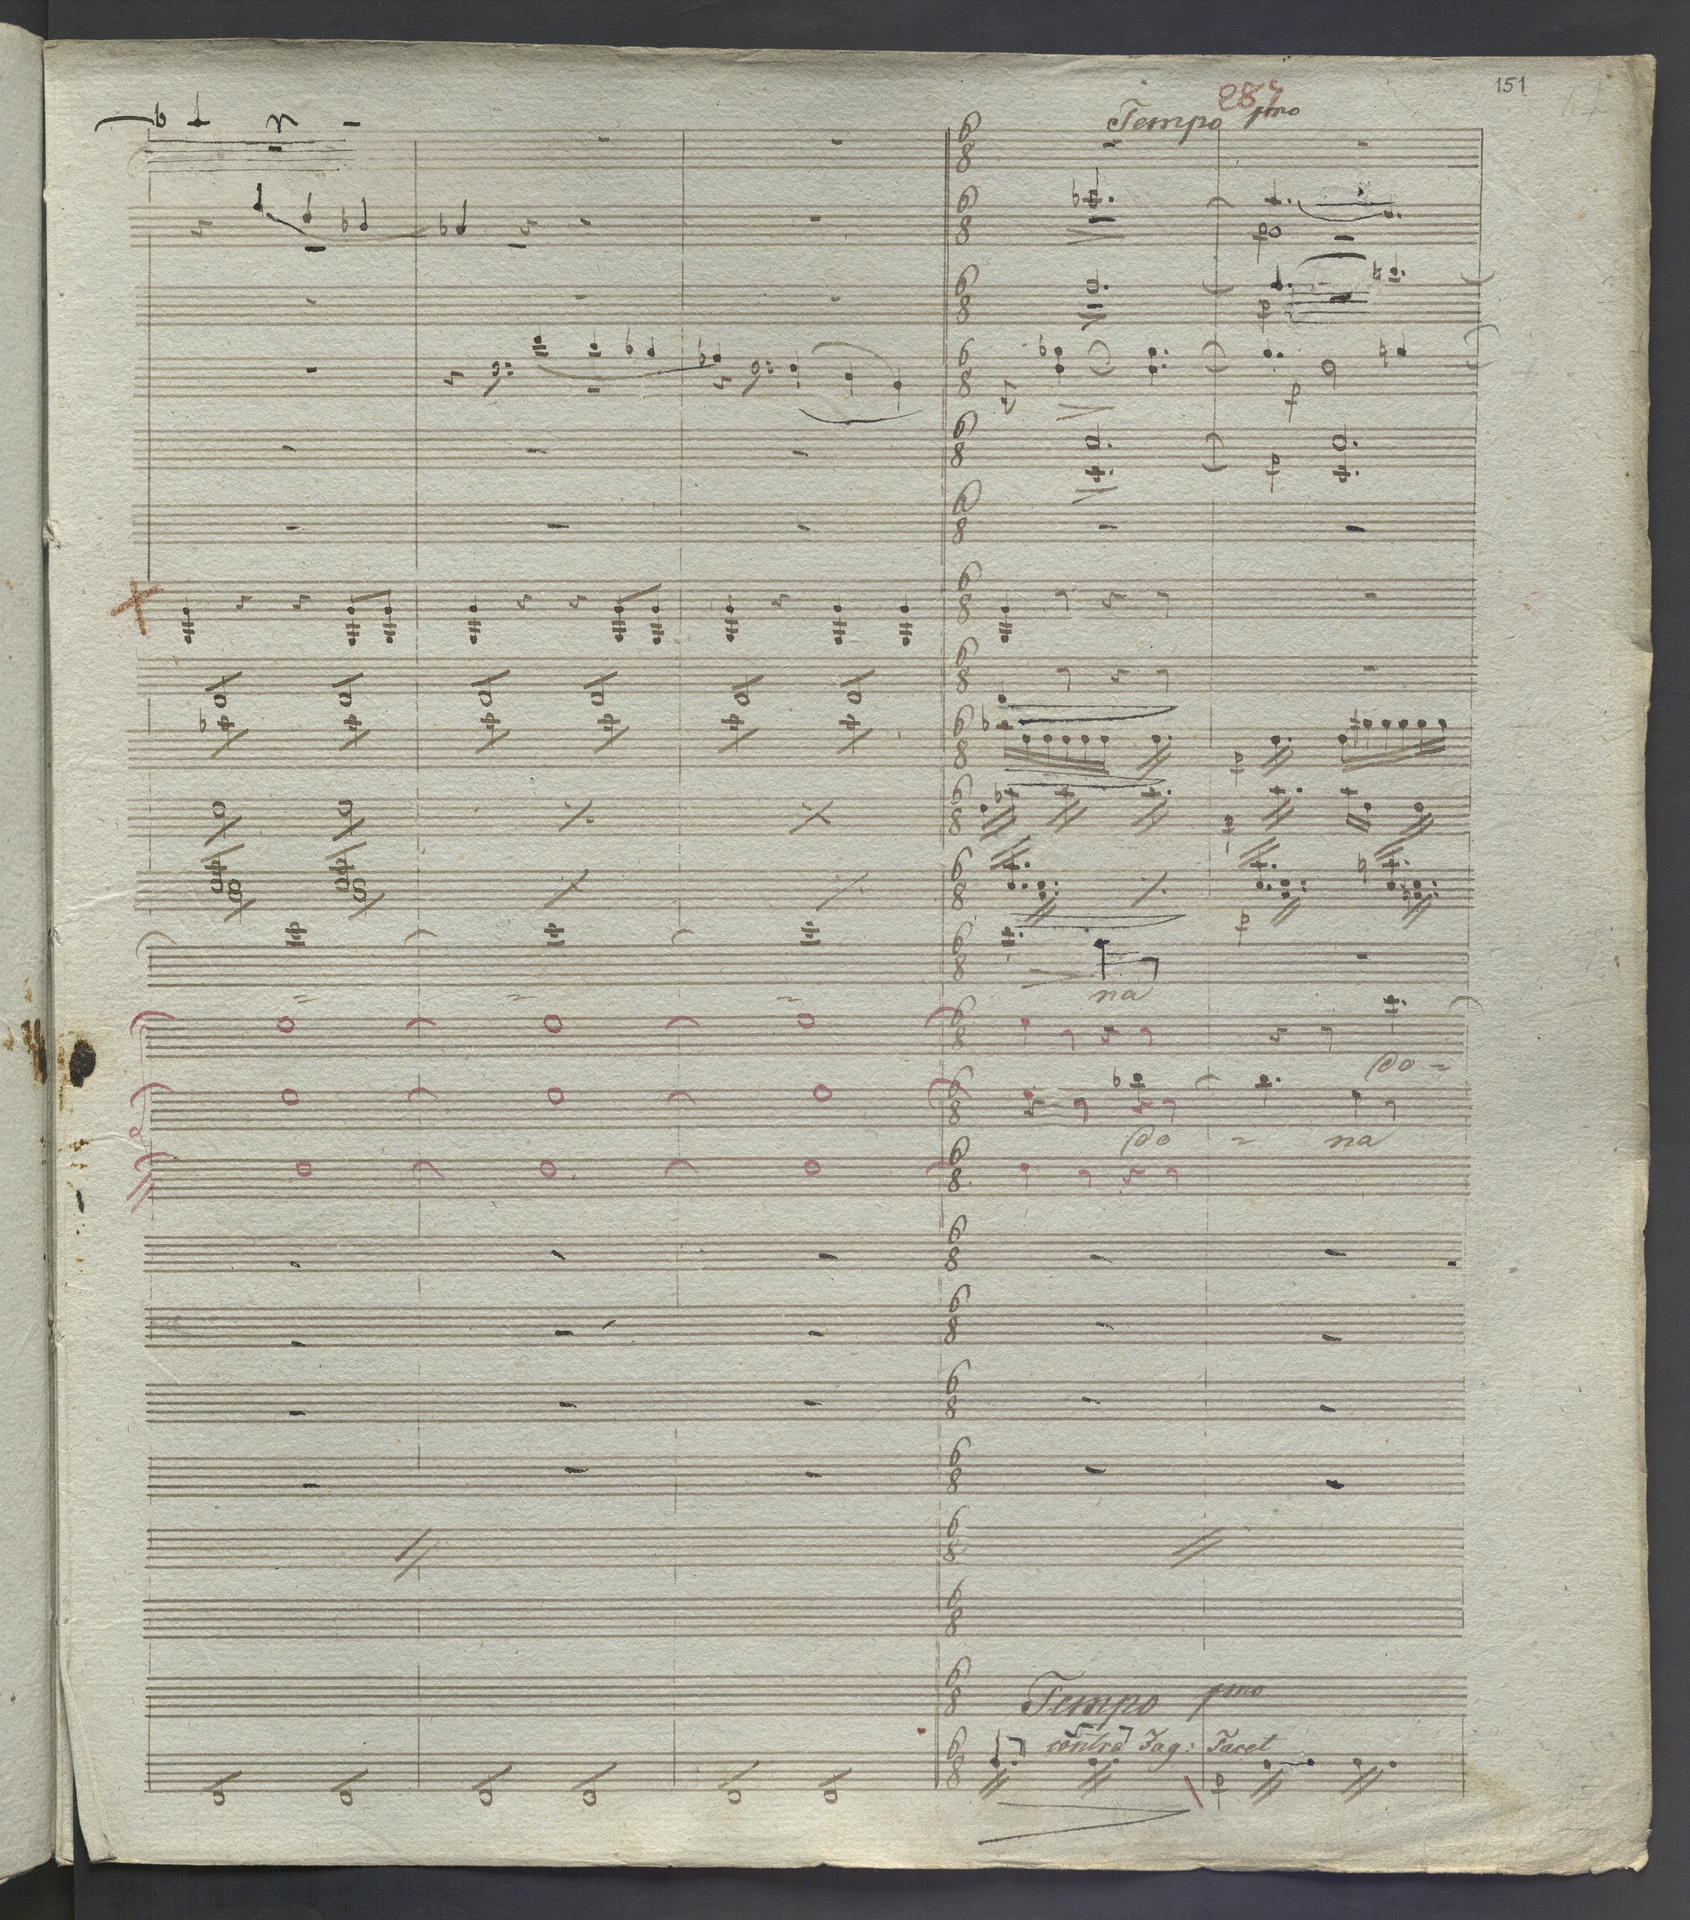 151
287
Tempo pmo
na
do -
do - na
Tempo pmo
contra Fag: Tacet